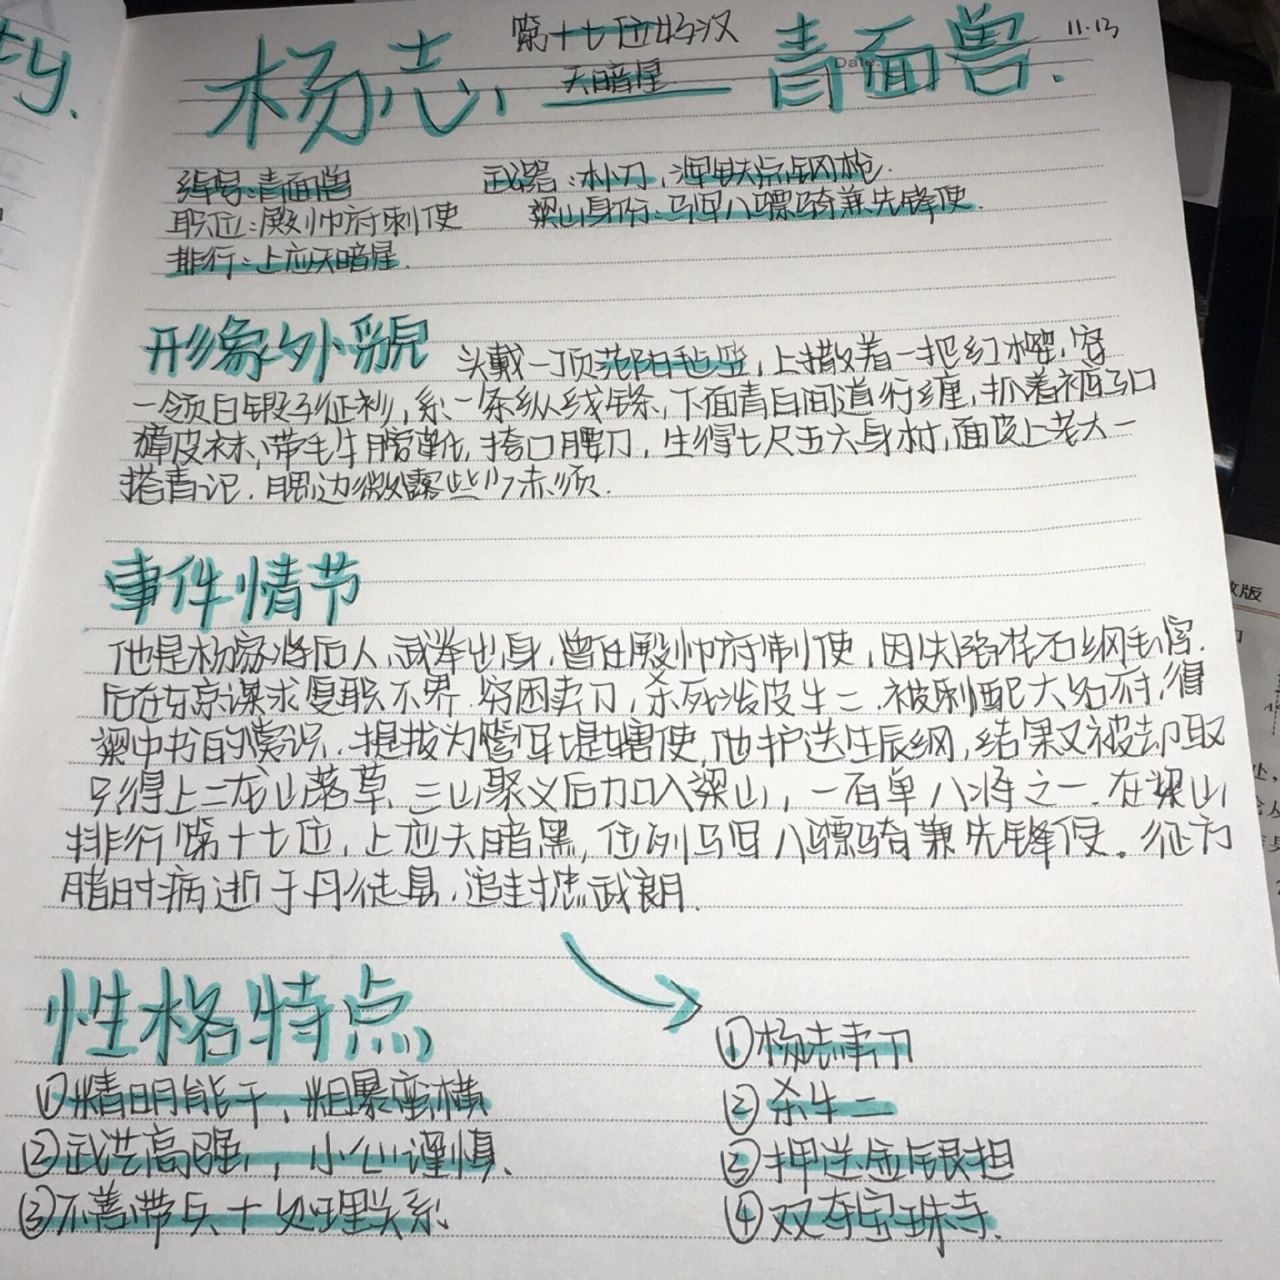 ty.
第十七位好汉
11.13
杨志,
天暗星
青面兽.
Date.
绰号:青面兽
武器:朴刀,浑铁点钢枪.
职位:殿帅府制使
梁山身份:马军八骠骑兼先锋使.
排行:上应天暗星.
形象外貌
头戴一顶范阳毡笠,上撒着一把红樱,穿
一领白缎子征衫,系一条纵线绦,下面青白间道行缠,抓着裤子口
獐皮袜,带毛牛膀靴,挎口腰刀,生得七尺五六身材,面皮上老大一
搭青记.腮边微露些少赤须.
事件情节
他是杨家将后人,武举出身,曾任殿帅府制使,因失陷花石纲丢官.
后在东京谋求复职不果.穷困卖刀,杀死泼皮牛二.被刺配大名府,得
梁中书的赏识.提拔为管军提辖使,他护送生辰纲,结果又被劫取
只得上二龙山落草.三山聚义后加入梁山,一百单八将之一.在梁山
排行第十七位,上应天暗黑,位列马军八骠骑兼先锋使。征方
腊时病逝于丹徒县,追封忠武郎.
性格特点
①精明能干,粗暴蛮横
②武艺高强,小心谨慎.
③不善带兵+处理关系.
①杨志卖刀
②杀牛二
③押送金银担
④双夺宝珠寺.
版